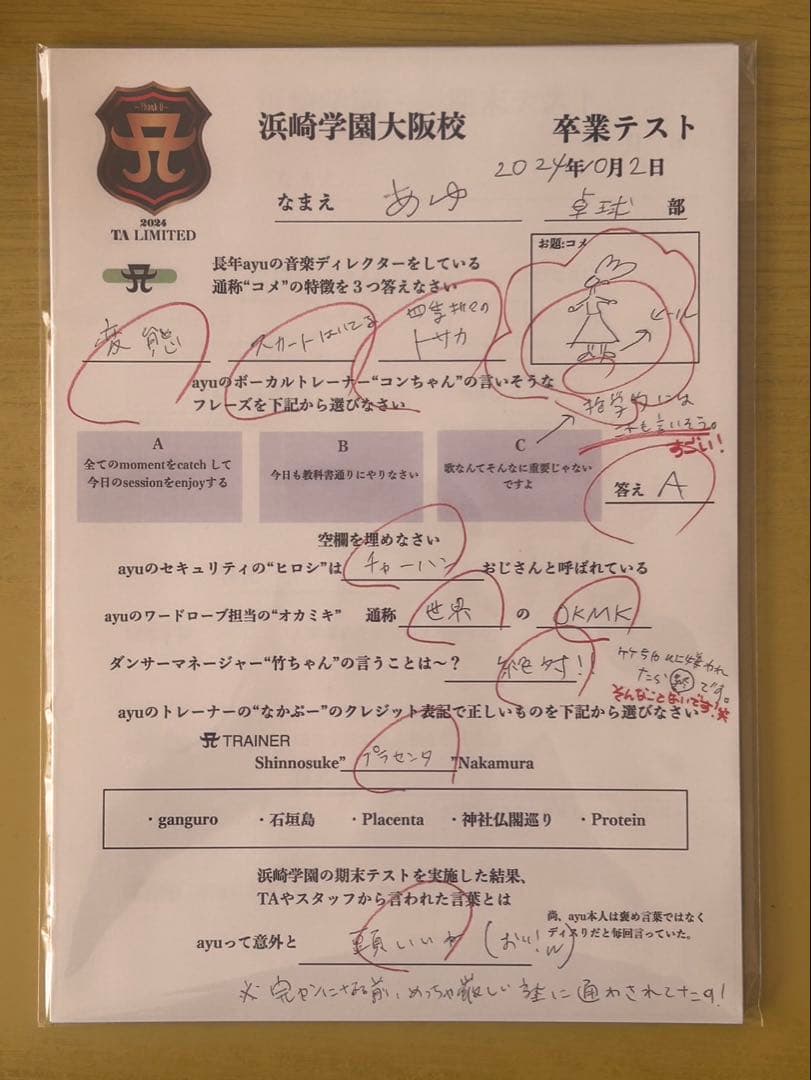 ~Thank U~
2024
TA LIMITED
浜崎学園大阪校 卒業テスト
2024年10月2日
なまえ あゆ 卓球 部
お題:コメ
長年ayuの音楽ディレクターをしている
通称“コメ”の特徴を3つ答えなさい
変態 スカートはいてる 四季折々の
トサカ
ヒール
ayuのボーカルトレーナー“コンちゃん”の言いそうな
フレーズを下記から選びなさい
哲学的には
これも言いそう。
すごい!
A
全てのmomentをcatch して
今日のsessionをenjoyする
B
今日も教科書通りにやりなさい
C
歌なんてそんなに重要じゃない
ですよ
答え A
空欄を埋めなさい
ayuのセキュリティの“ヒロシ”は チャーハン おじさんと呼ばれている
ayuのワードローブ担当の“オカミキ” 通称 世界 の OKMK
ダンサーマネージャー“竹ちゃん”の言うことは〜? 絶対!!
に嫌われ
たら 終 です。
そんなことないです!笑
ayuのトレーナーの“なかぷー”のクレジット表記で正しいものを下記から選びなさい
TRAINER
Shinnosuke” プラセンタ ”Nakamura
・ganguro ・石垣島 ・Placenta ・神社仏閣巡り ・Protein
浜崎学園の期末テストを実施した結果、
TAやスタッフから言われた言葉とは
尚、ayu本人は褒め言葉ではなく
ディスりだと毎回言っていた。
ayuって意外と 頭いいね (おい!w)
※完センになる前、めっちゃ厳しい に通わされてたす!